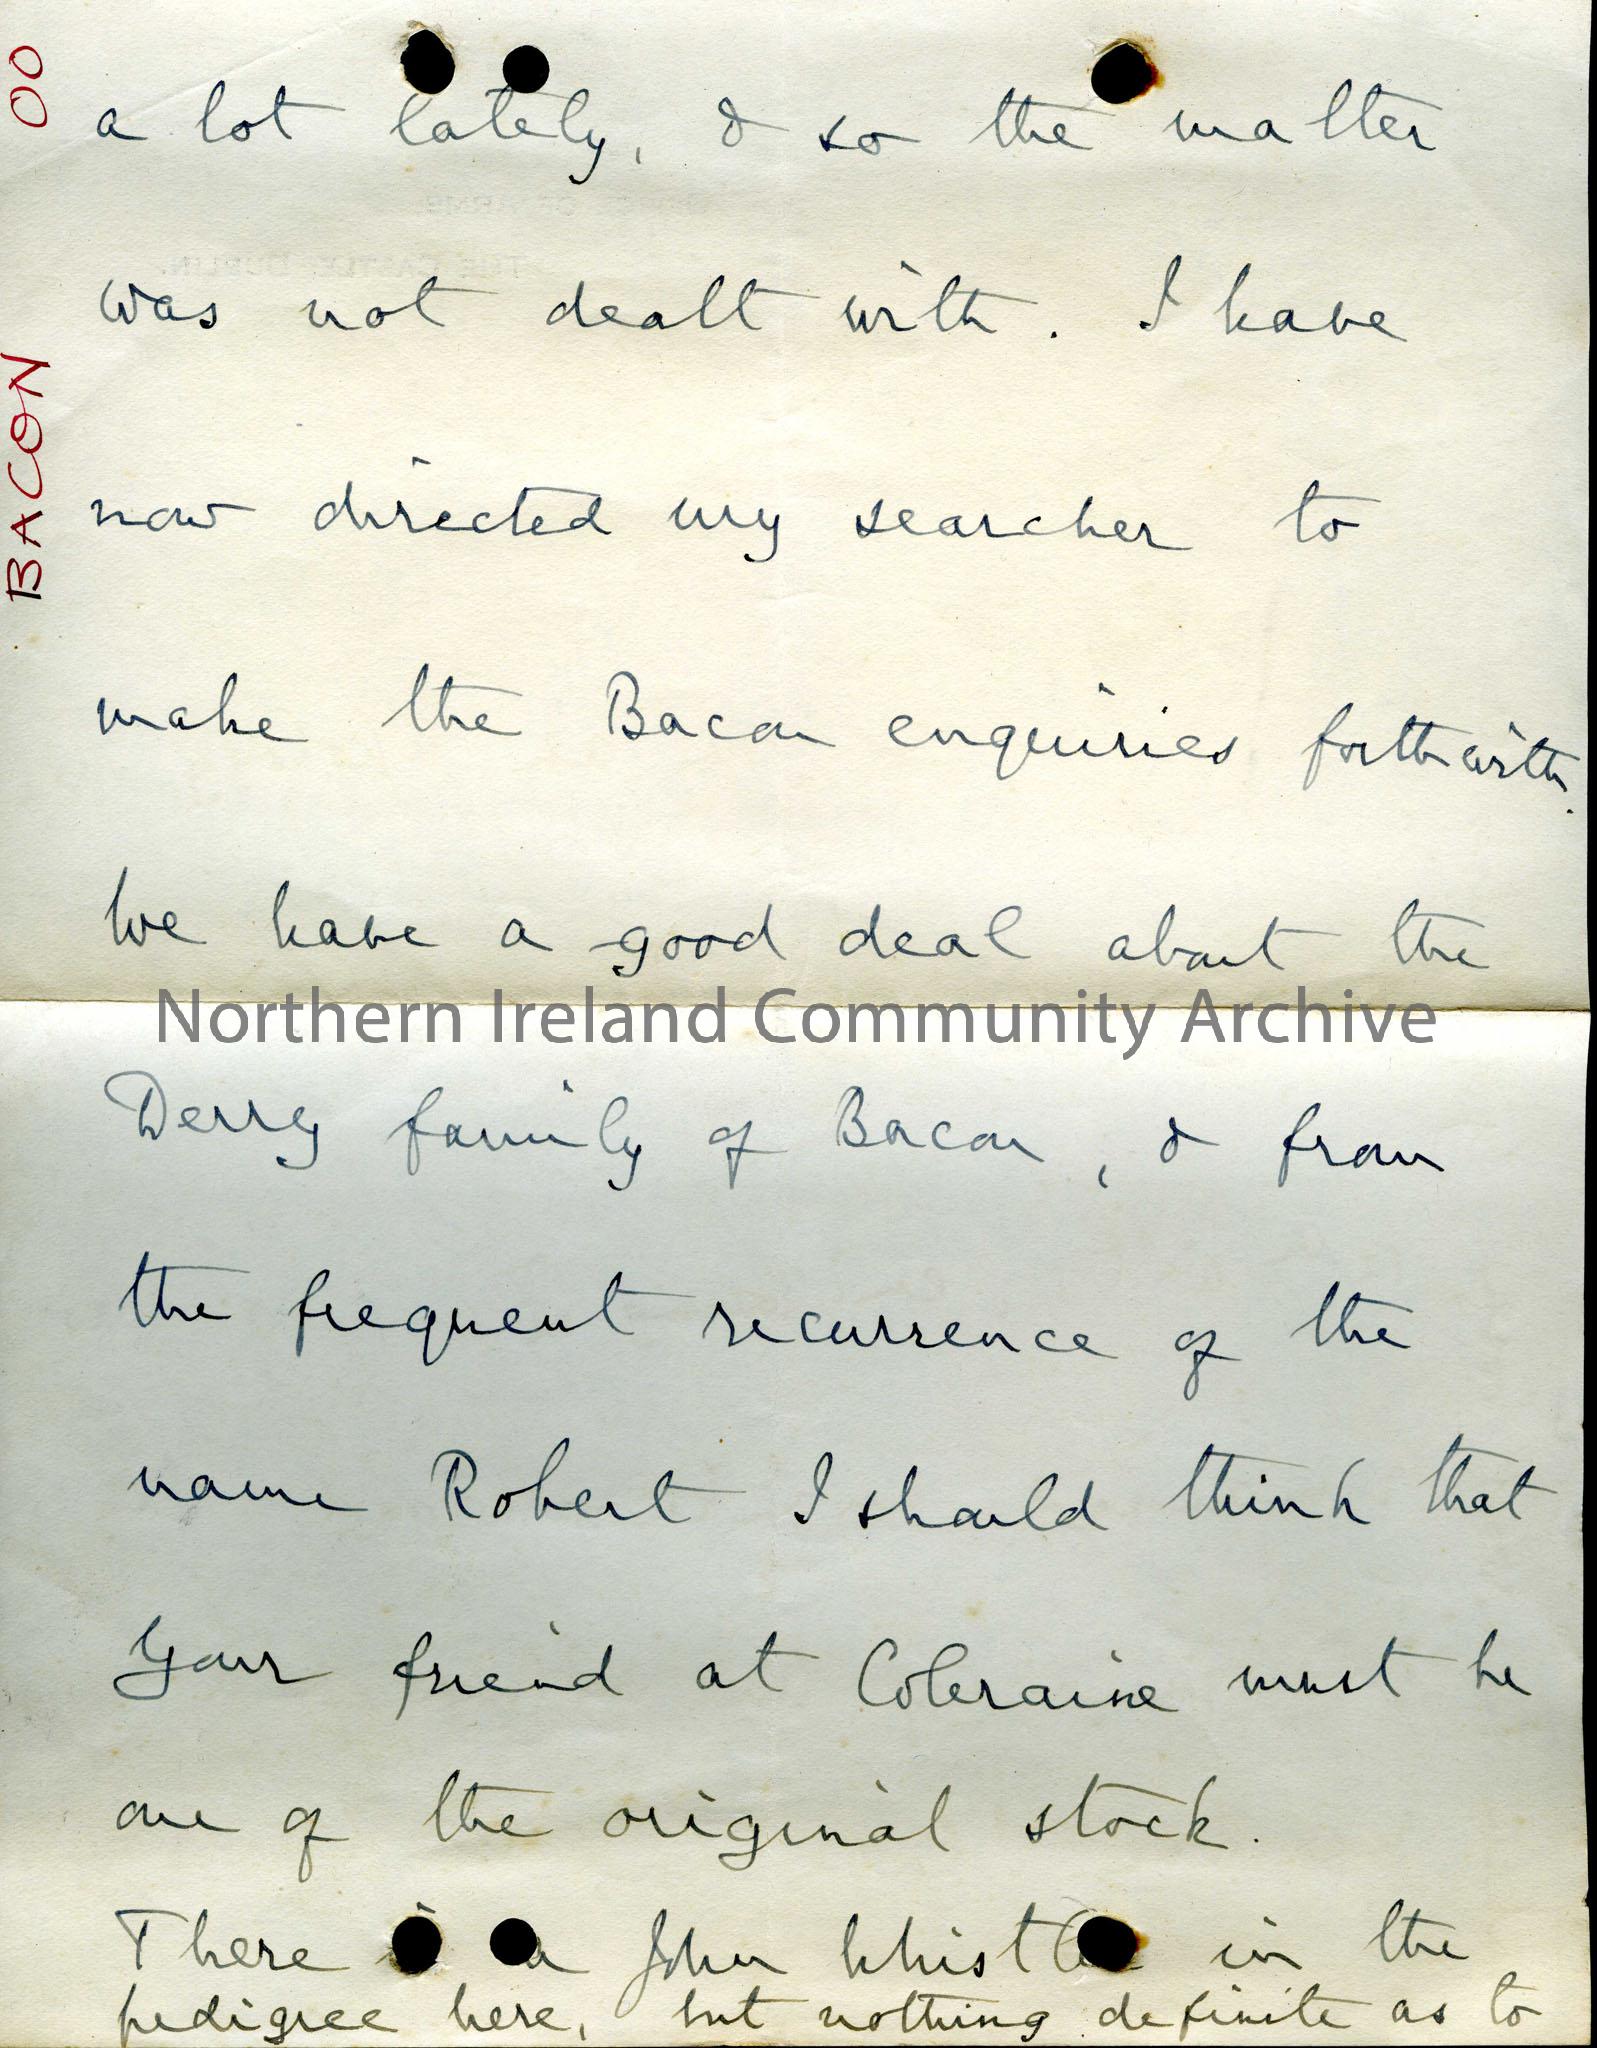 BACON OO
a lot lately, & so the matter
was not dealt with. I have
now directed my searcher to
make the Bacon enquiries forthwith.
We have a good deal about the
Northern Ireland Community Archive
Derry family of Bacon, & from
the frequent recurrence of the
name Robert I should think that
your friend at Coleraine must be
one of the original stock.
There is a John Whistler in the
pedigree here, but nothing definite as to